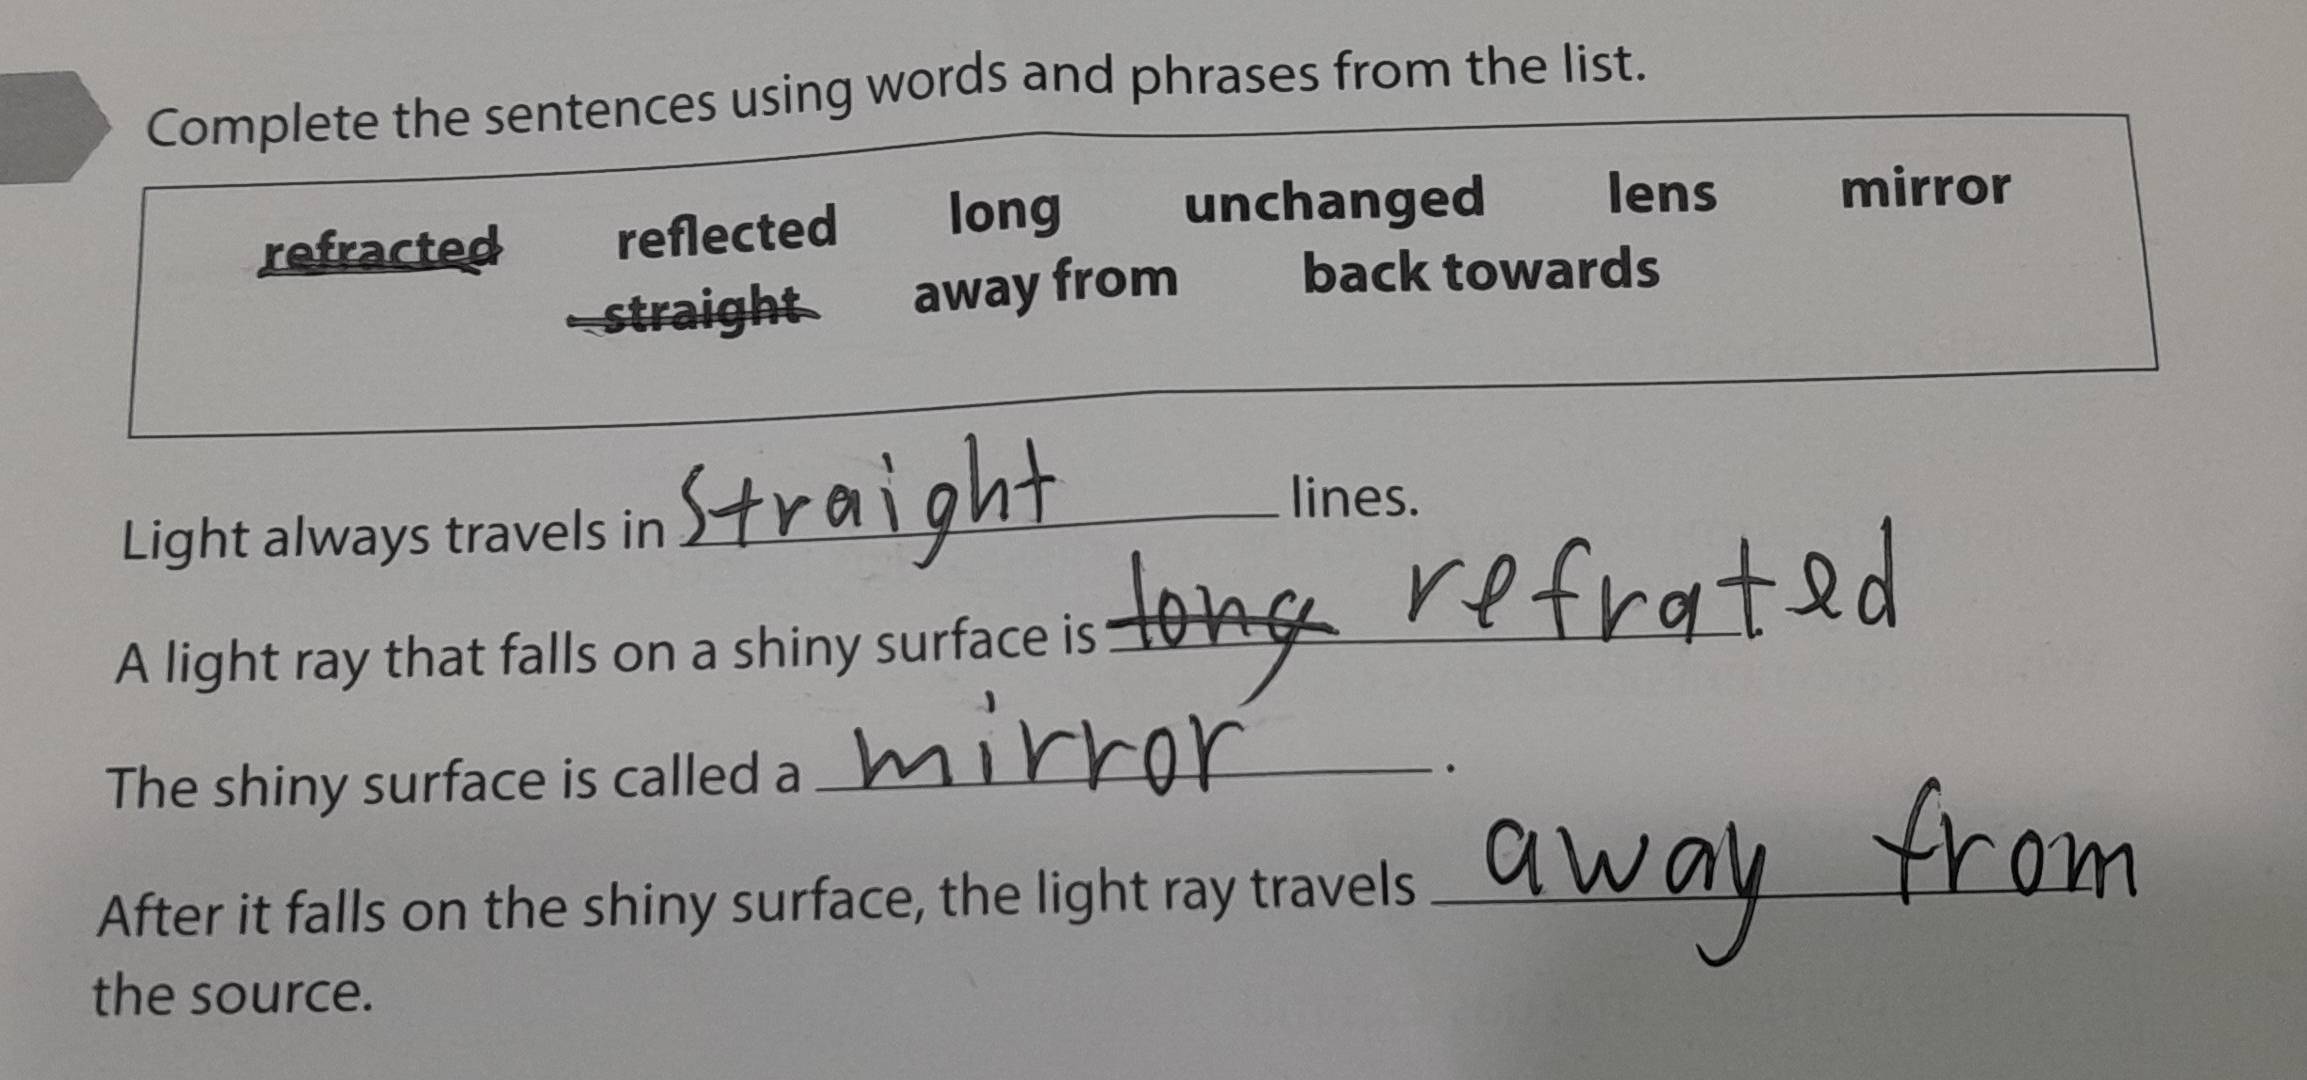 Complete the sentences using words and phrases from the list.
refracted reflected long unchanged lens mirror
straight away from back towards
Light always travels in straight lines.
A light ray that falls on a shiny surface is long refrated
The shiny surface is called a mirror .
After it falls on the shiny surface, the light ray travels away from
the source.